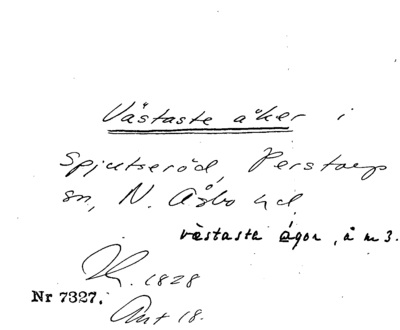 Västaste åker i
Spjutseröd, Perstorp
sn, N. Åsbo hd.
västasta ägor, å m 3.
1828
Nr 7327.
Ant 18.